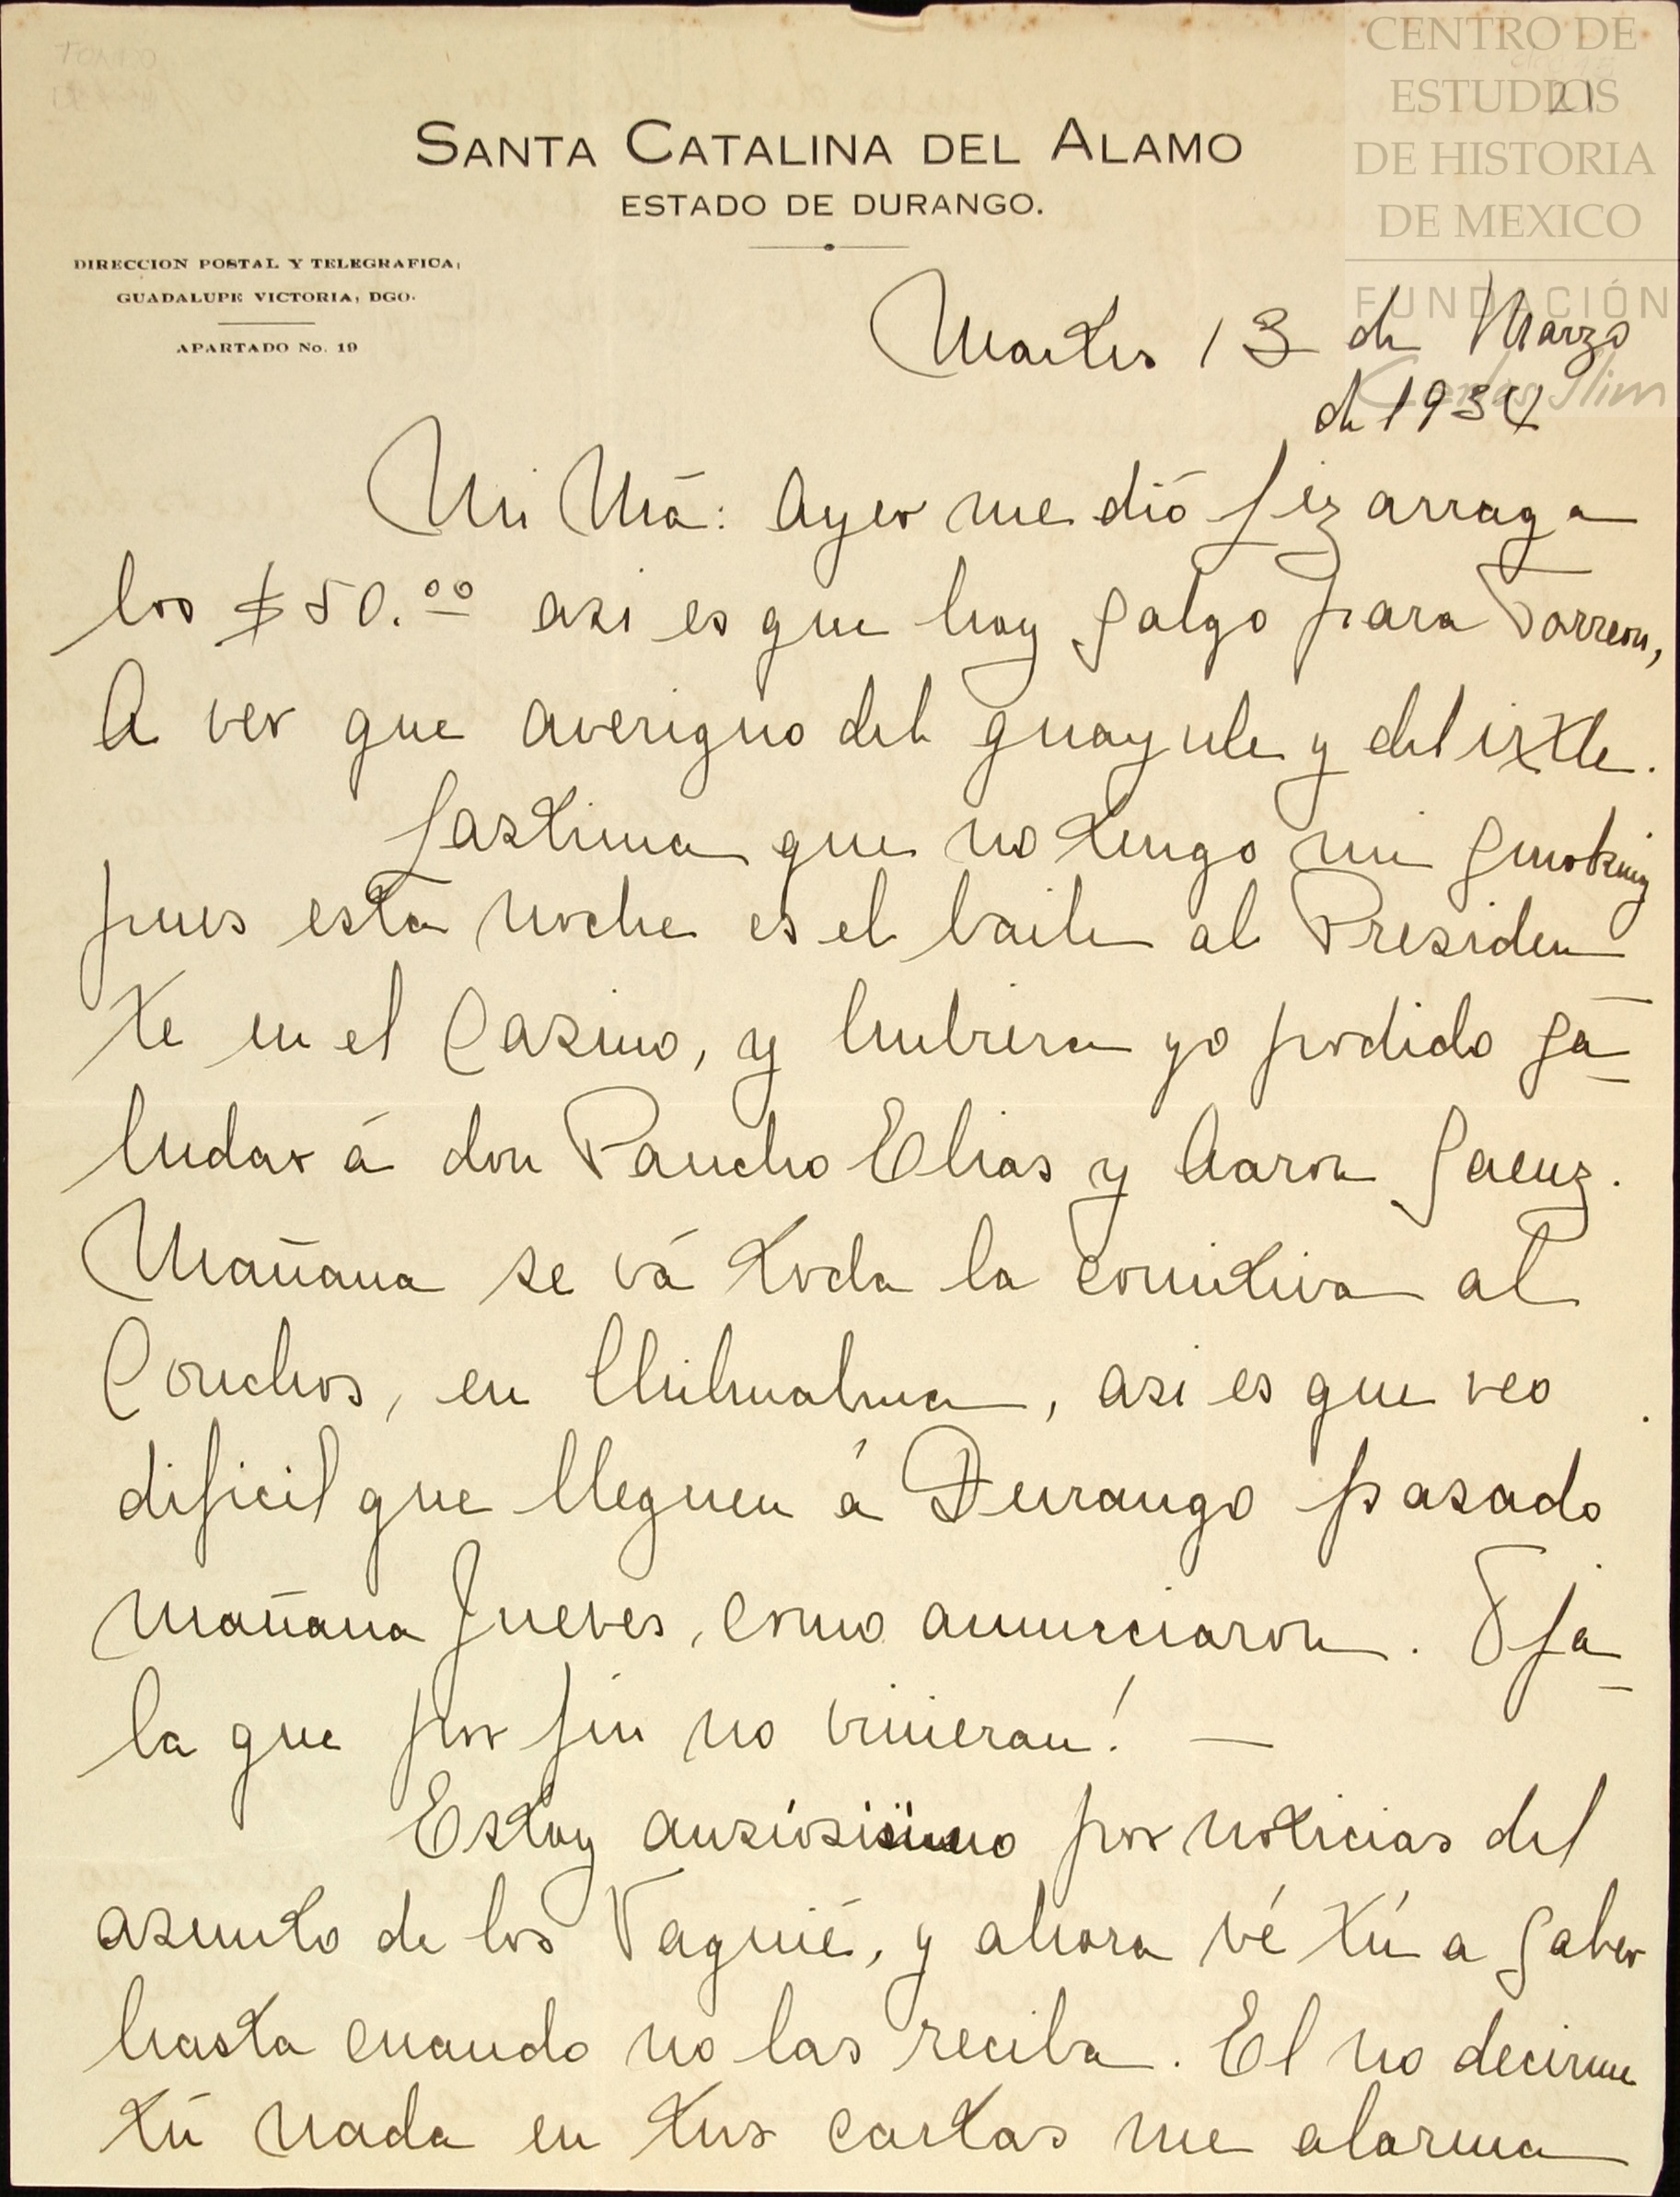 CENTRO DE
ESTUDIOS
21
DE HISTORIA
DE MEXICO
FUNDACIÓN
Carlos Slim
SANTA CATALINA DEL ALAMO
ESTADO DE DURANGO.
DIRECCION POSTAL Y TELEGRAFICA,
GUADALUPE VICTORIA, DGO.
APARTADO No. 19
Martes 13 de Marzo
de 1934
Mi Má: Ayer me dió Lizarraga
los $50.00 asi es que hoy salgo para Torreon,
A ver que averiguo del guayule y del ixtle.
Lastima que no tengo mi smoking
pues esta noche es el baile al Presiden
te en el Casino, y hubiera yo podido sa-
ludar á don Pancho Elias y Aaron Saenz.
Mañana se vá toda la comitiva al
Conchos, en Chihuahua, asi es que veo
dificil que lleguen á Durango pasado
mañana Jueves, como anunciaron. Oja-
la que por fin no vinieran! —
Estoy ansiosisimo por noticias del
asunto de los Taguié, y ahora vé tú a saber
hasta cuando no las reciba. El no decirme
tú nada en tus cartas me alarma